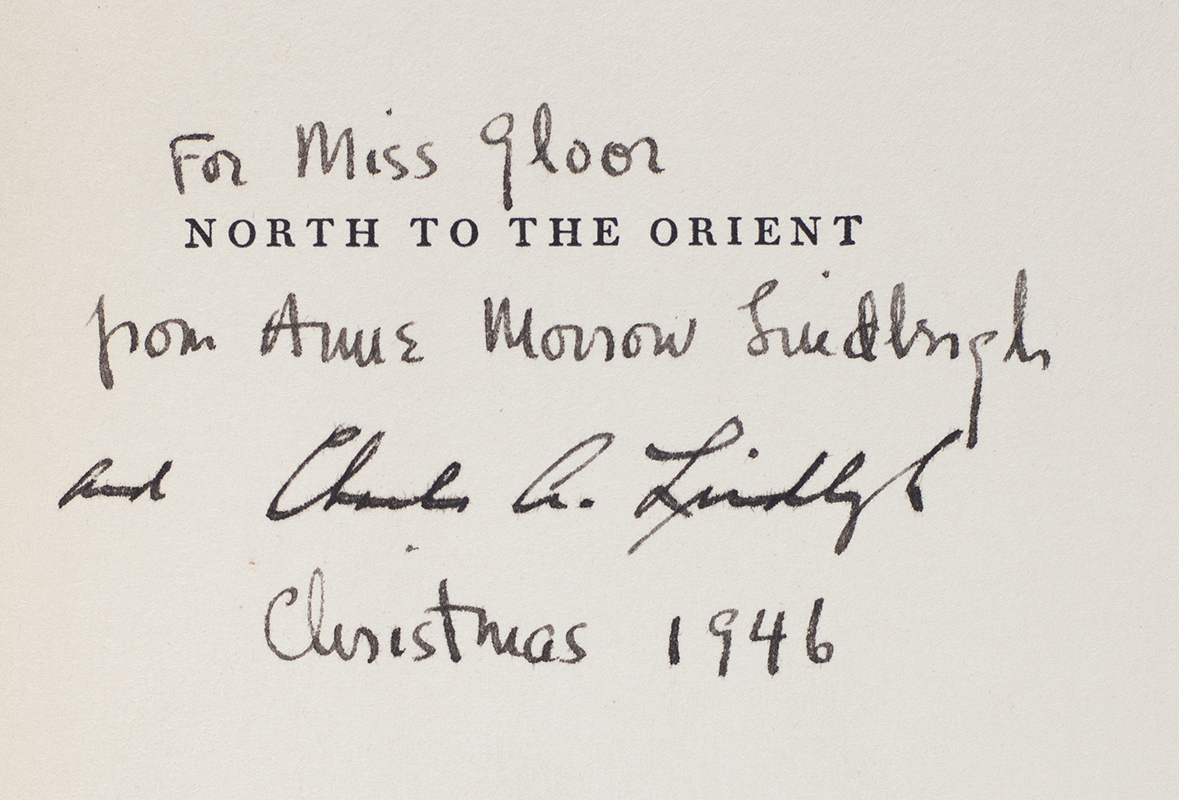 For Miss Gloor
NORTH TO THE ORIENT
from Anne Morrow Lindbergh
and Charles A. Lindbergh
Christmas 1946